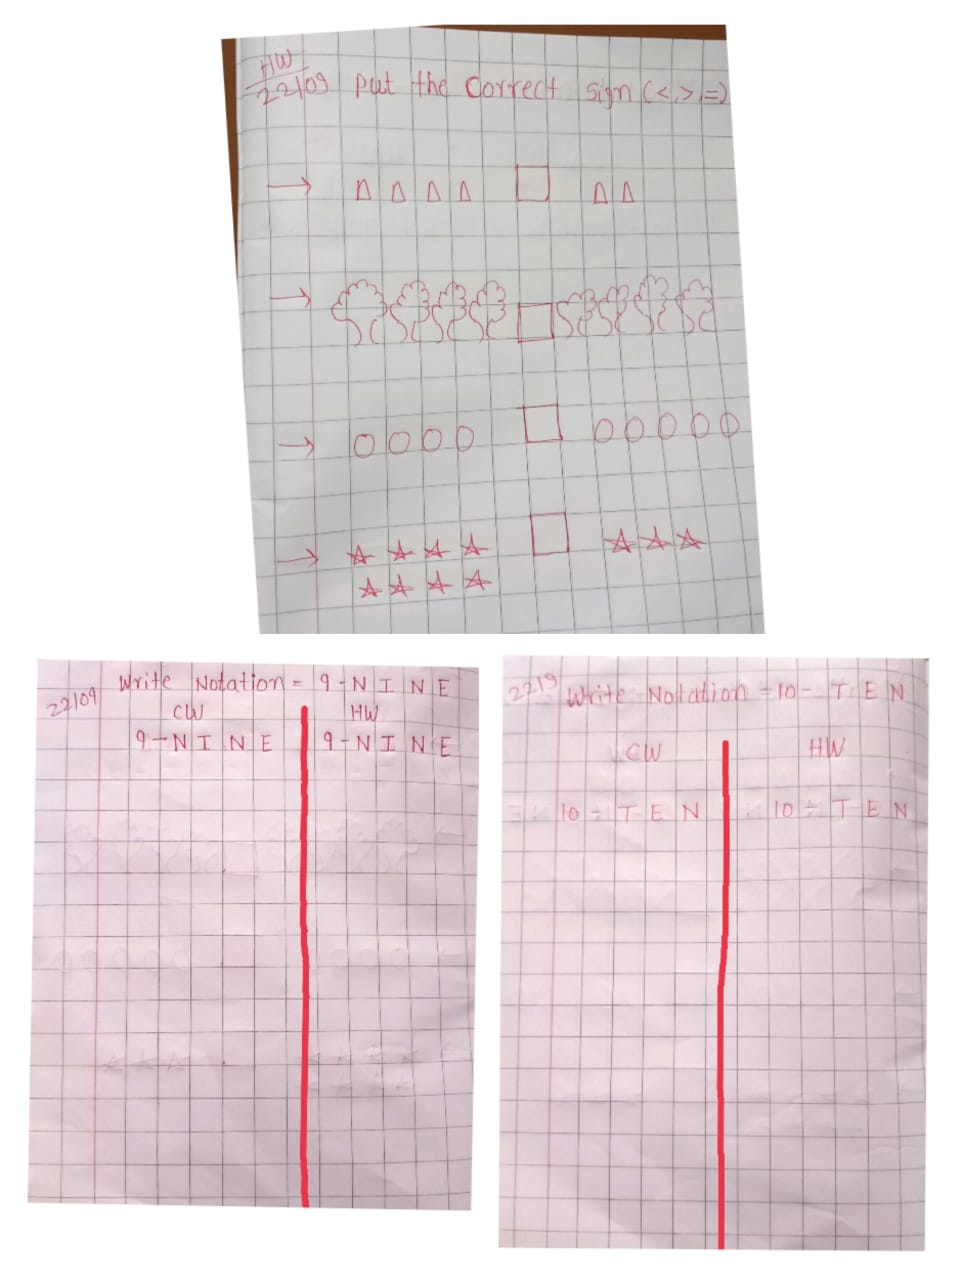 HW
22/09 Put the Correct Sign (<,>,=)
22/09 Write Notation = 9-NINE
CW HW
9-NINE 9-NINE
22/9 Write Notation = 10-TEN
CW HW
10-TEN 10-TEN